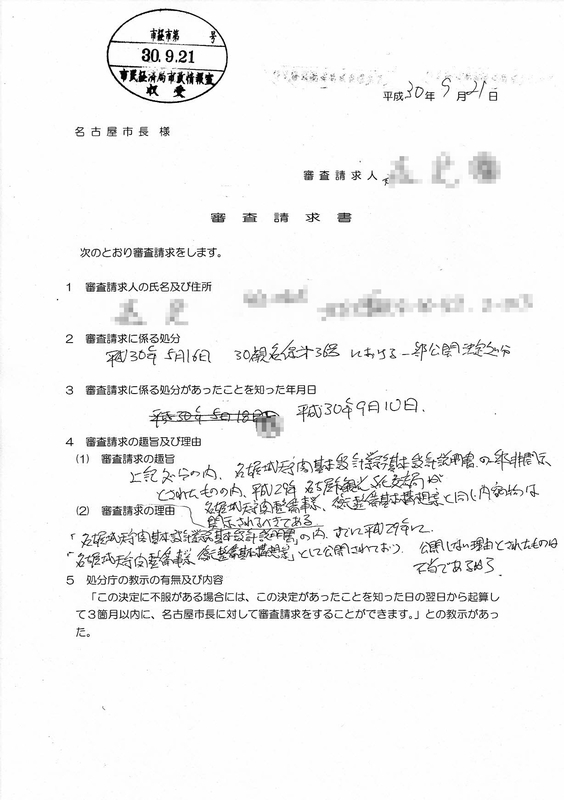 市経市第 号
30.9.21
市民経済局市政情報室
収受
平成30年9月21日
名古屋市長様
審査請求人
審査請求書
次のとおり審査請求をします。
1 審査請求人の氏名及び住所
2 審査請求に係る処分
平成30年5月16日 30観名保第36号 における一部公開決定処分
3 審査請求に係る処分があったことを知った年月日
平成30年5月18日 平成30年9月10日.
4 審査請求の趣旨及び理由
(1) 審査請求の趣旨
上記処分の内、名古屋城天守閣基本設計業務基本設計説明書の一部非開示
とされたものの内、平成29年 名古屋市観光文化交流局が
(2) 審査請求の理由
名古屋城天守閣整備事業、
と同じ内容物は
開示されるべきである
「名古屋城天守閣基本設計業務基本設計説明書」の内、すでに平成29年に
「名古屋城天守閣整備事業、
」として公開されており、公開しない理由とされたものは
不当である為.
5 処分庁の教示の有無及び内容
「この決定に不服がある場合には、この決定があったことを知った日の翌日から起算し
て3箇月以内に、名古屋市長に対して審査請求をすることができます。」との教示があっ
た。